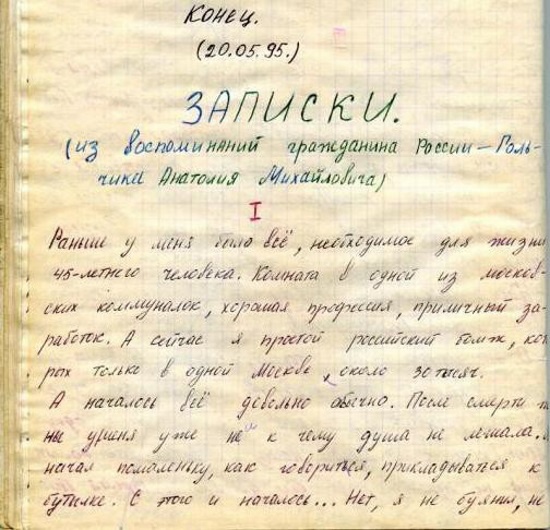 Конец.
(20.05.95.)
ЗАПИСКИ.
(из воспоминаний гражданина России – Голь-
чика Анатолия Михайловича)
I
Раньше у меня было всё, необходимое для жизни
45-летнего человека. Комната в одной из москов-
ских коммуналок, хорошая профессия, приличный за-
работок. А сейчас я простой российский бомж, кот
рых только в одной Москве, около 30 тысяч.
А началось всё довольно обычно. После смерти
ны у меня уже ни к чему душа не лежала.
начал помаленьку, как говориться, прикладываться к
бутылке. С этого и началось... Нет, я не буянил, не